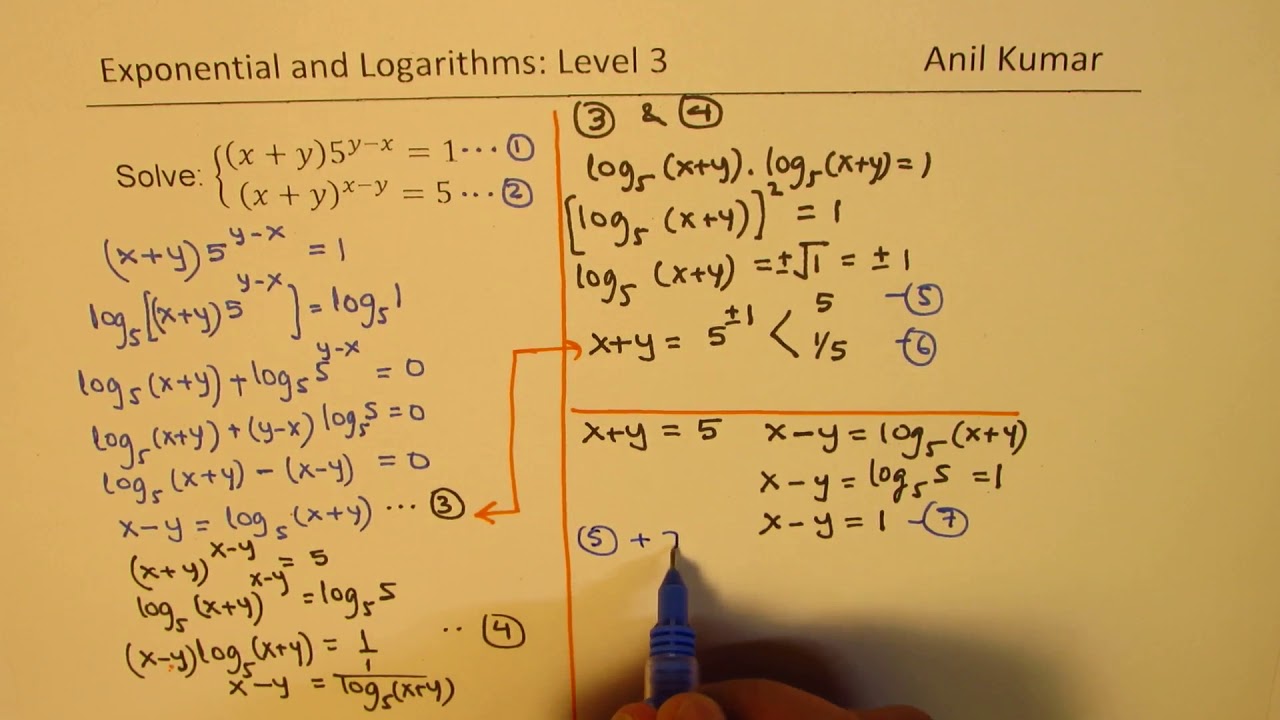 Exponential and Logarithms: Level 3 Anil Kumar
Solve: { (x + y)5^{y−x} = 1 ··· ①
(x + y)^{x−y} = 5 ··· ②
(x+y)5^{y−x} = 1
log₅[(x+y)5^{y−x}] = log₅1
log₅(x+y) + log₅5^{y−x} = 0
log₅(x+y) + (y−x) log₅5 = 0
log₅(x+y) − (x−y) = 0
x−y = log₅(x+y) ··· ③
(x+y)^{x−y} = 5
log₅(x+y)^{x−y} = log₅5
(x−y)log₅(x+y) = 1 ·· ④
x−y = 1/log₅(x+y)
③ & ④
log₅(x+y) · log₅(x+y) = 1
[log₅(x+y)]² = 1
log₅(x+y) = ±√1 = ±1
x+y = 5^{±1} < 5 −⑤
1/5 −⑥
x+y = 5 x−y = log₅(x+y)
x−y = log₅5 = 1
x−y = 1 −⑦
⑤ + 7